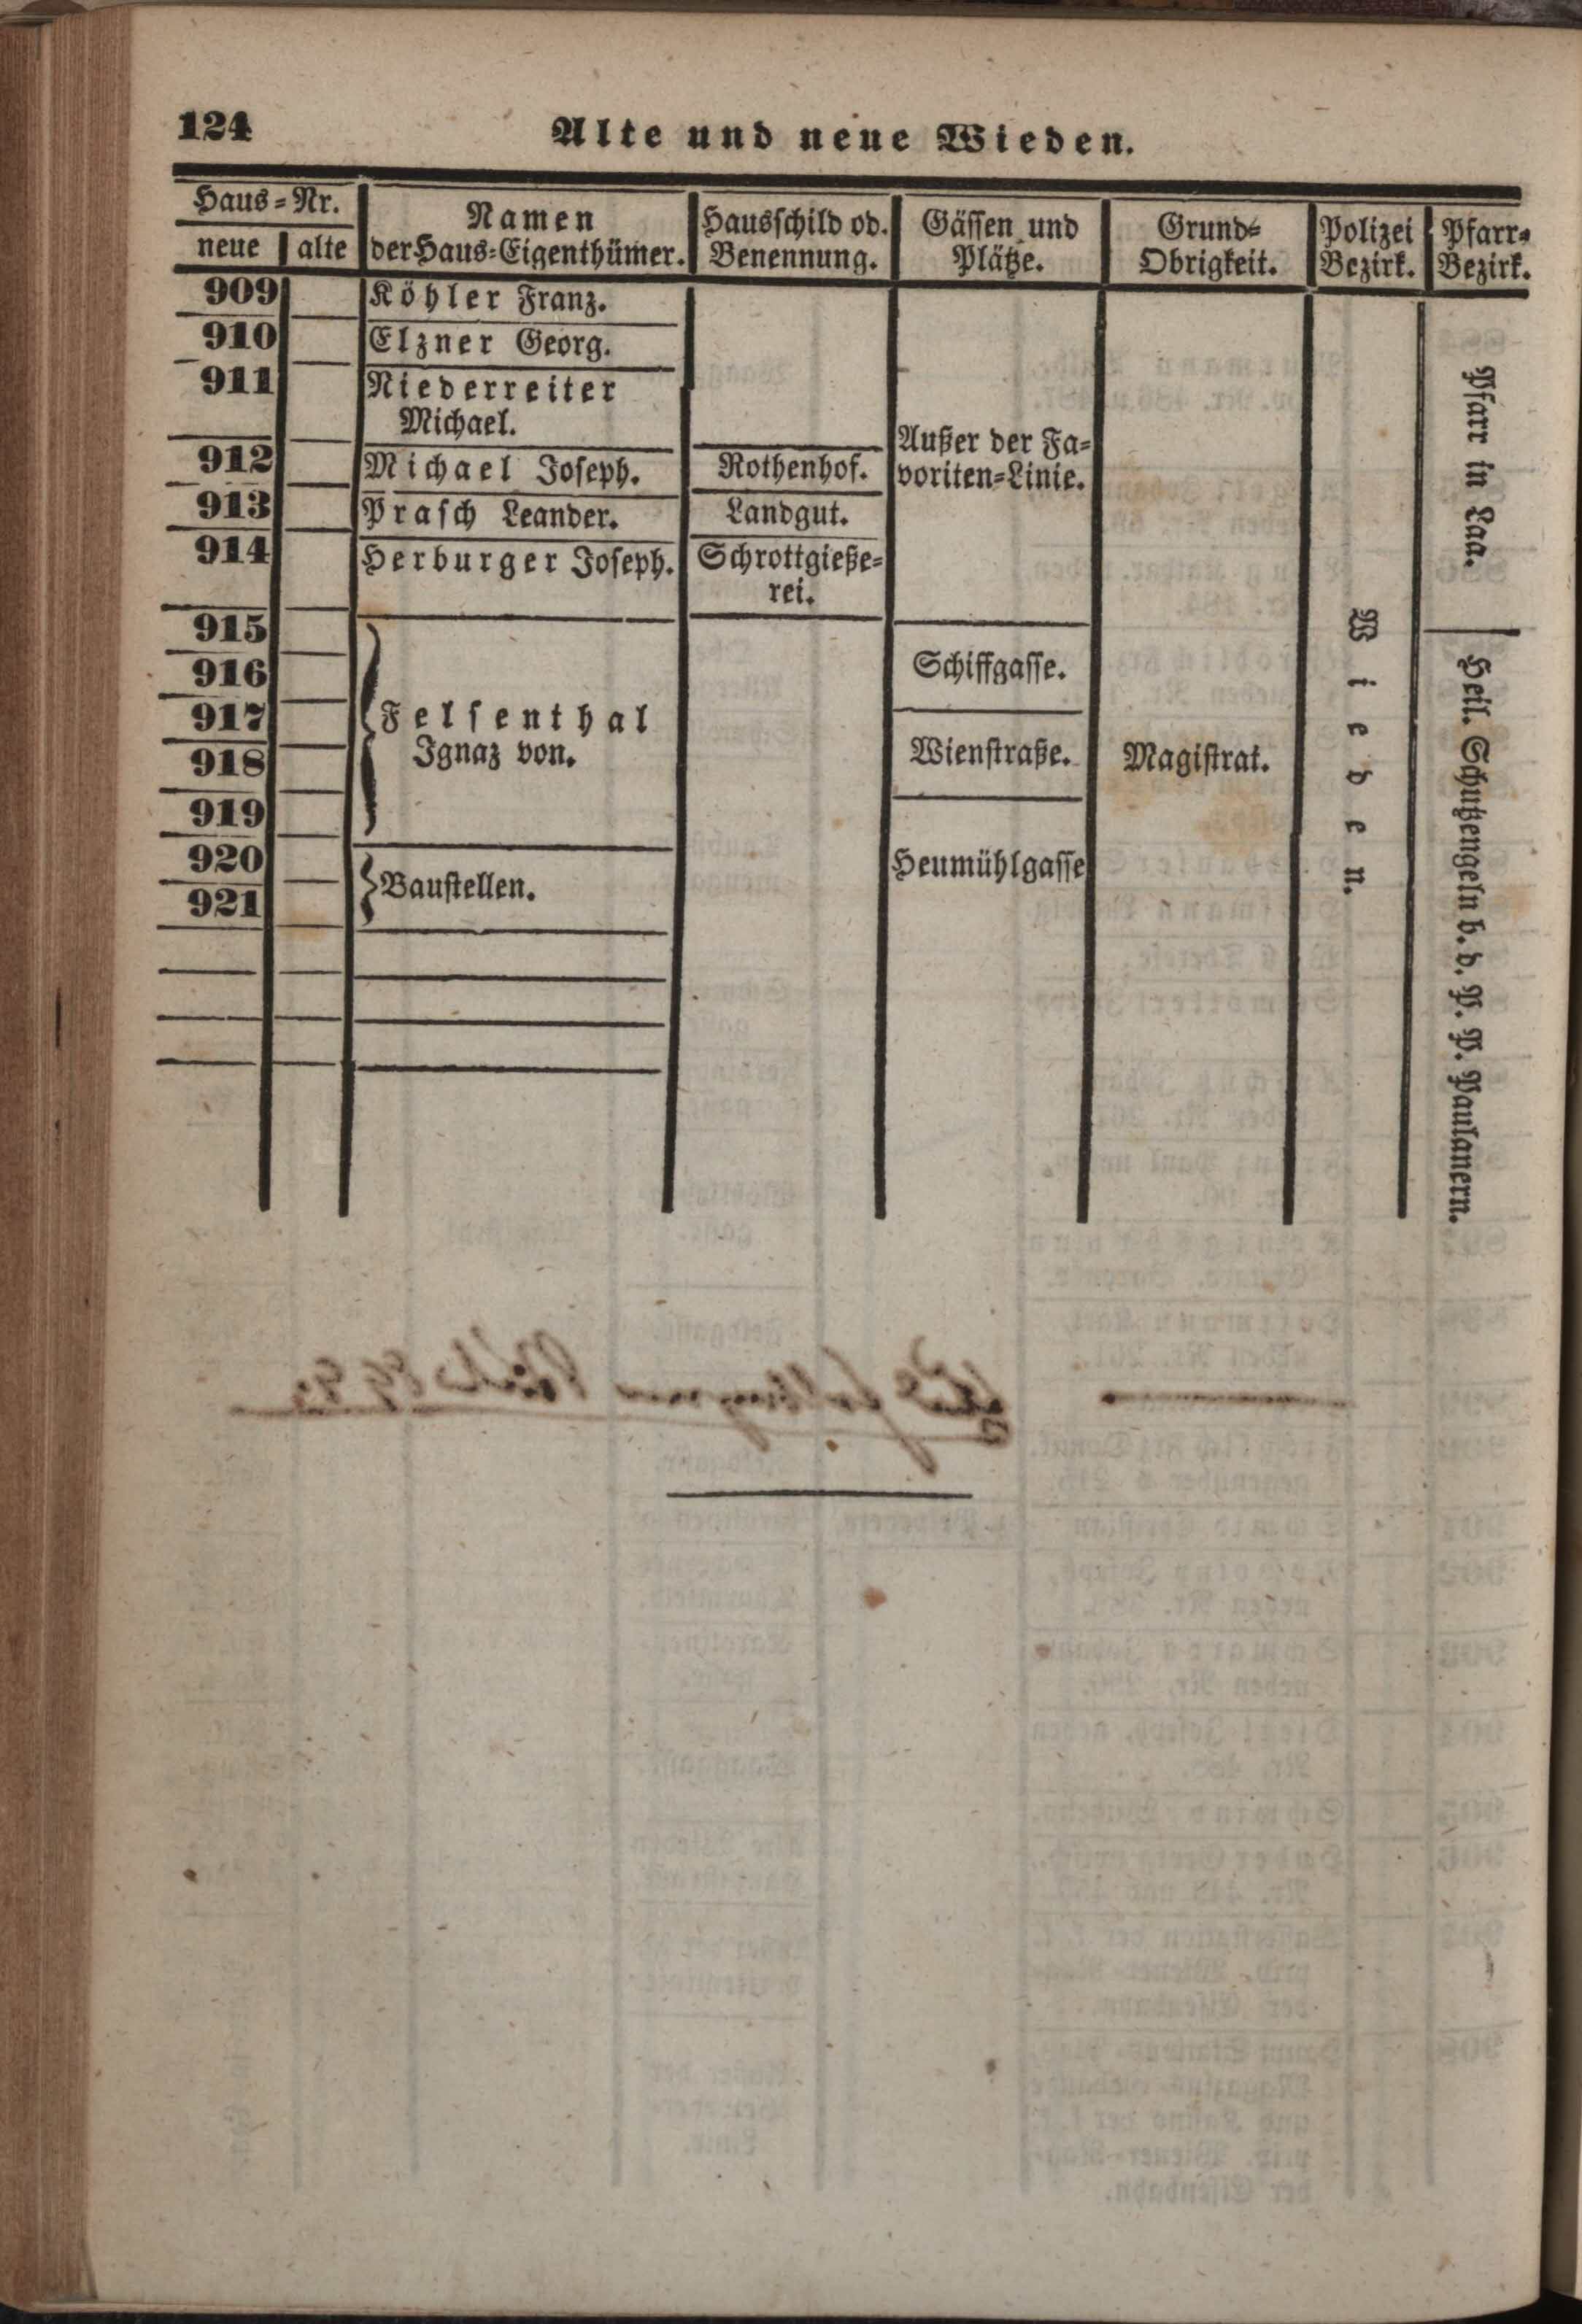 124
Alte und neue Wieden.
Haus=Nr.
neue alte
Namen
der Haus=Eigenthümer.
Hausschild od.
Benennung.
Gässen und
Plätze.
Grund=
Obrigkeit.
Polizei
Bezirk.
Pfarr=
Bezirk.
909 Köhler Franz.
910 Elzner Georg.
911 Niederreiter
Michael.
912 Michael Joseph. Rothenhof.
913 Prasch Leander. Landgut.
914 Herburger Joseph. Schrottgieße=
rei.
Außer der Fa=
voriten=Linie.
915
916
917
918
919
Felsenthal
Ignaz von.
920
921
Baustellen.
Schiffgasse.
Wienstraße.
Heumühlgasse
Magistrat.
Wieden.
Pfarr in Laa.
Heil. Schutzengeln b. d. P. P. Paulanern.